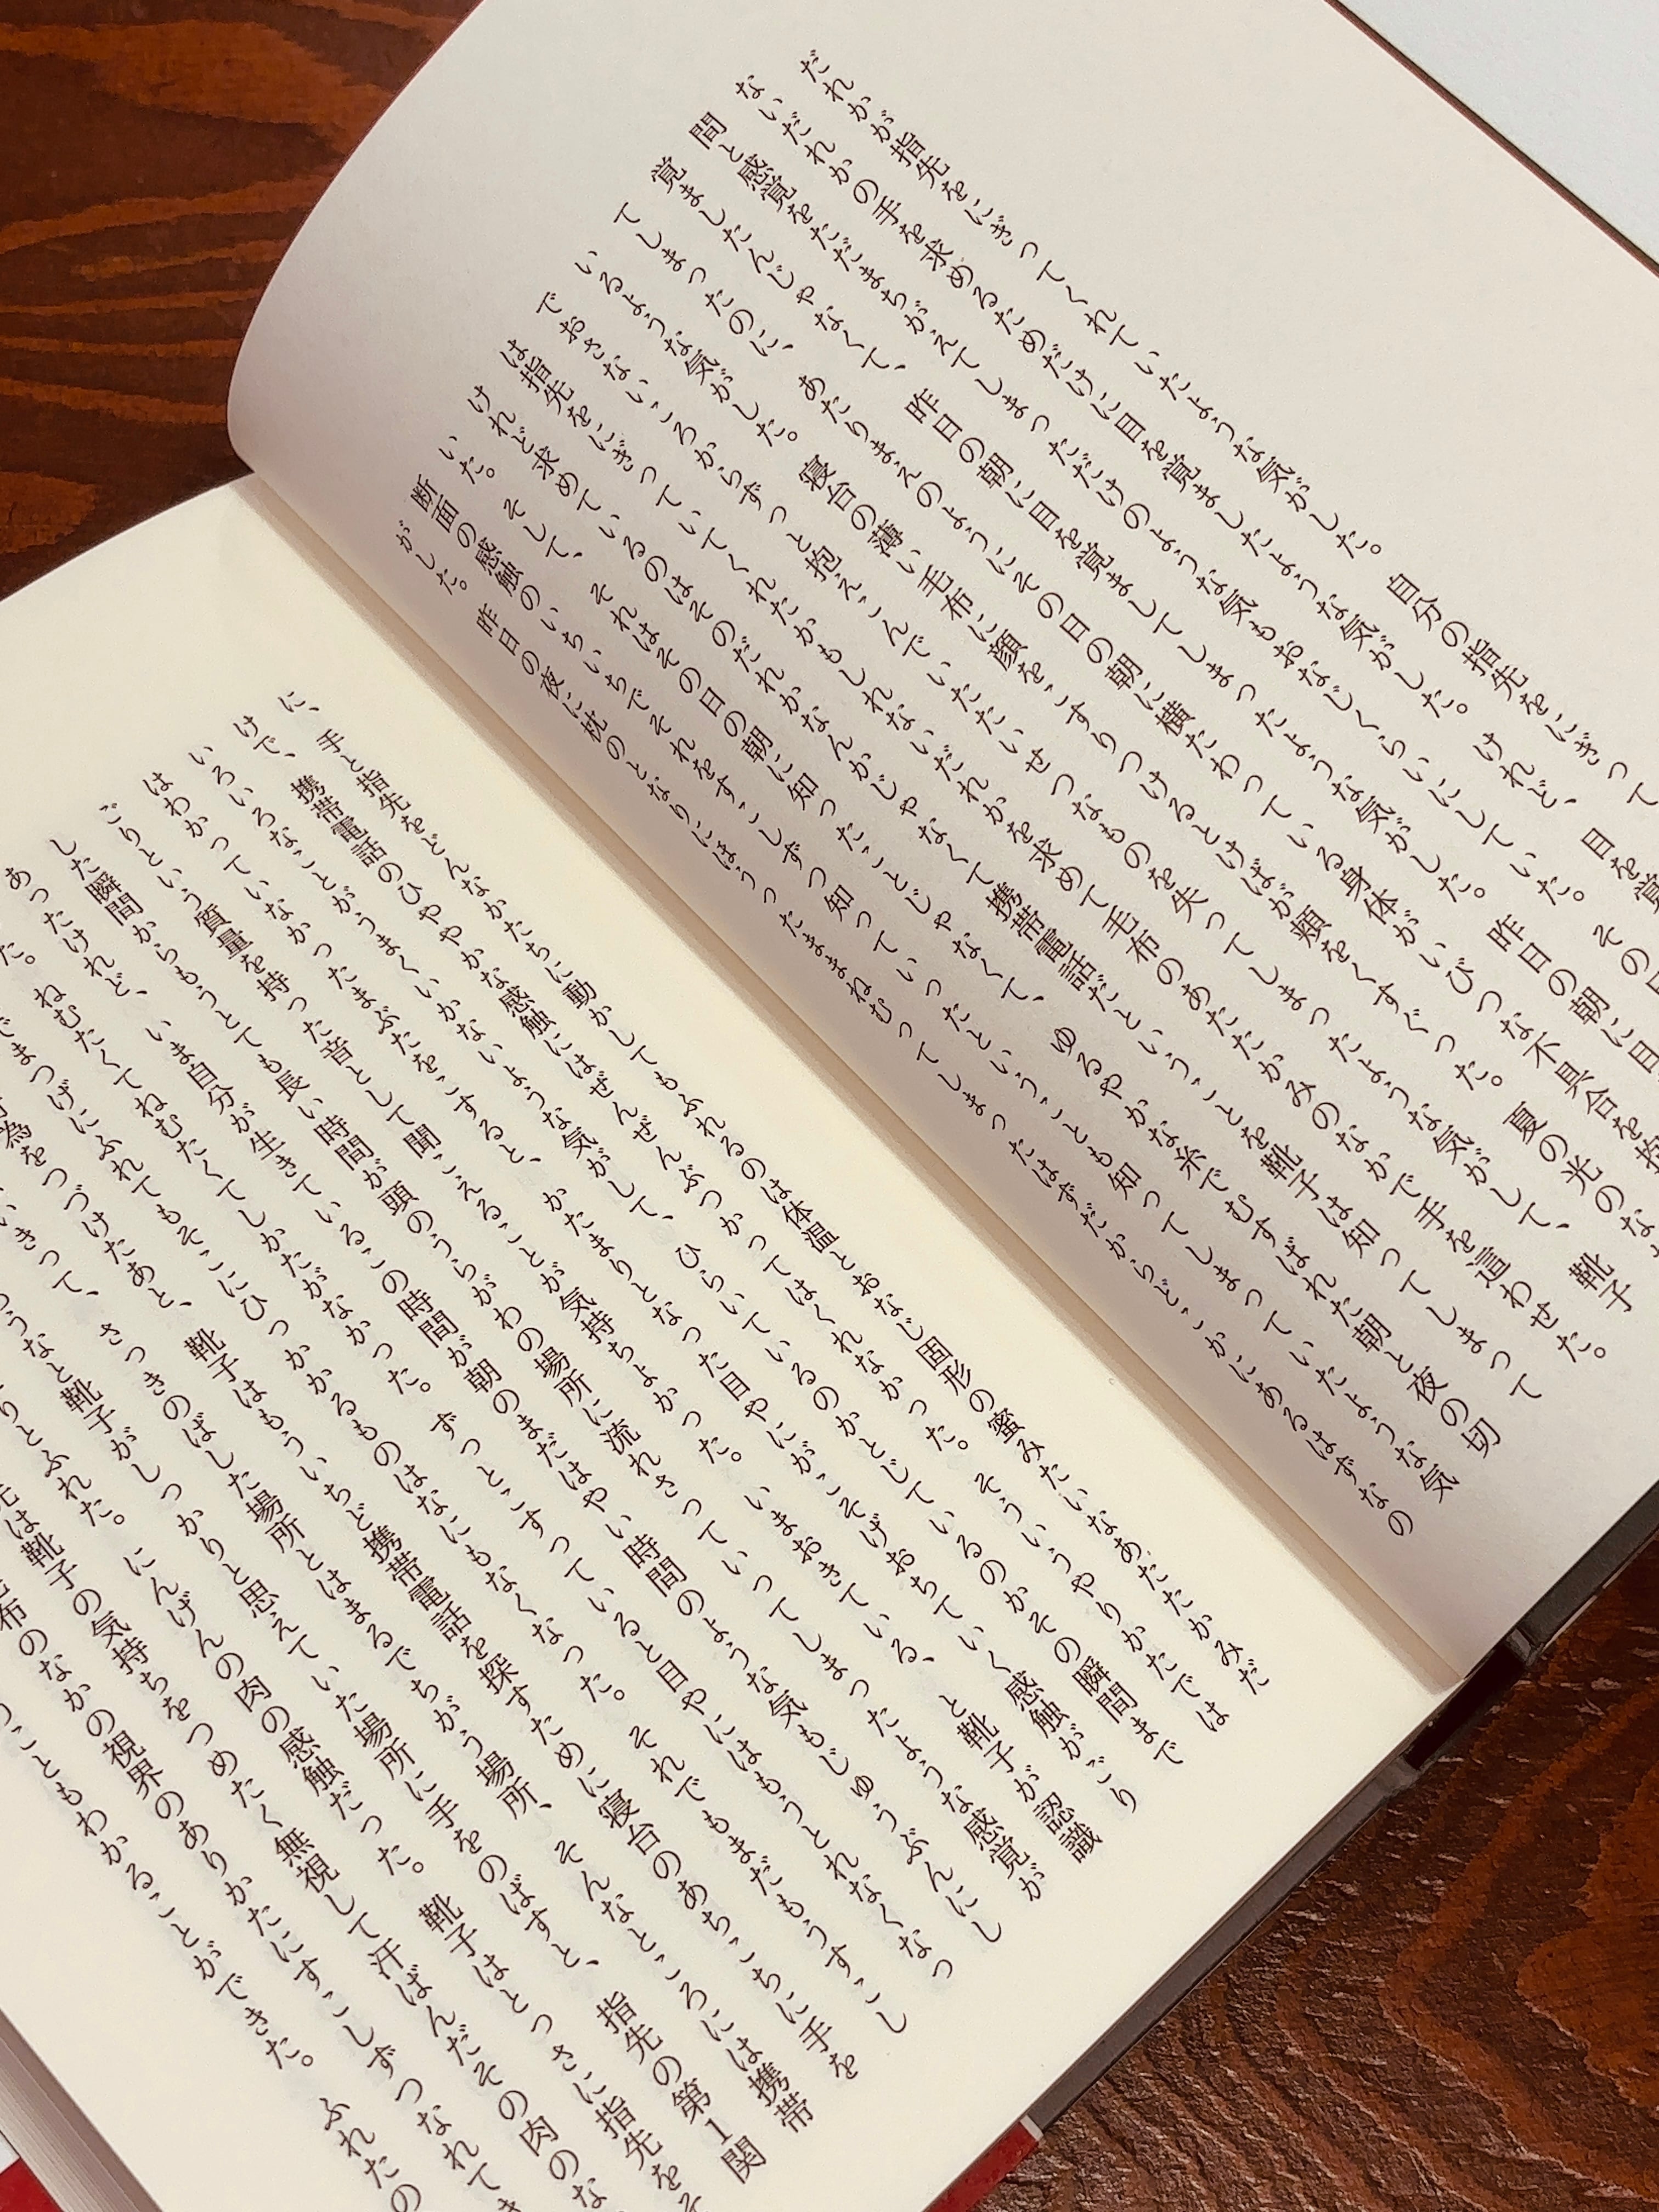 だれかが指先をにぎってくれていたような気がした。自分の指先をにぎって
ないだれかの手を求めるためだけに目を覚ましたような気がした。けれど、目を覚
間と感覚をただまちがえてしまっただけのような気もおなじくらいにしていた。その日
覚ましたんじゃなくて、昨日の朝に目を覚ましてしまったような気がした。昨日の朝に目
てしまったのに、あたりまえのようにその日の朝に横たわっている身体がいびつな不具合を抱
いるような気がした。寝台の薄い毛布に顔をこすりつけるとけばが頬をくすぐった。夏の光のな
でおさないころからずっと抱えこんでいたたいせつなものを失ってしまったような気がして、靴子
は指先をにぎっていてくれたかもしれないだれかを求めて毛布のあたたかみのなかで手を這わせた。
けれど求めているのはそのだれかなんかじゃなくて携帯電話だということを靴子は知ってしまって
いた。そして、それはその日の朝に知ったことじゃなくて、ゆるやかな糸でむすばれた朝と夜の切
断面の感触のいちいちでそれをすこしずつ知っていったということも知ってしまっていたような気
がした。昨日の夜に枕のとなりにほうったままねむってしまったはずだからどこかにあるはずなの
に、手と指先をどんなかたちに動かしてもふれるのは体温とおなじ固形の蜜みたいなあたたかみだ
けで、携帯電話のひややかな感触にはぜんぜんぶつかってはくれなかった。そういうやりかたでは
いろいろなことがうまくいかないような気がして、ひらいているのかとじているのかその瞬間まで
はわかっていなかったまぶたをこすると、かたまりとなった目やにがこそげおちていく感触がごり
ごりという質量を持った音として聞こえることが気持ちよかった。いまおきている、と靴子が認識
した瞬間からもうとても長い時間が頭のうらがわの場所に流れさっていってしまったような感覚が
あったけれど、いま自分が生きているこの時間が朝のまだはやい時間のような気もじゅうぶんにし
た。ねむたくてねむたくてしかたがなかった。ずっとこすっていると目やにはもうとれなくなっ
でまつげにふれてもそこにひっかかるものはなにもなくなった。それでもまだもうすこし
為をつづけたあと、靴子はもういちど携帯電話を探すために寝台のあちこちに手を
いきって、さっきのばした場所とはまるでちがう場所、そんなところには携帯
うなと靴子がしっかりと思えていた場所に手をのばすと、指先の第1関
りとふれた。にんげんの肉の感触だった。靴子はとっさに指先をそ
は靴子の気持ちをつめたく無視して汗ばんだその肉のな
布のなかの視界のありかたにすこしずつなれてき
こともわかることができた。ふれたの